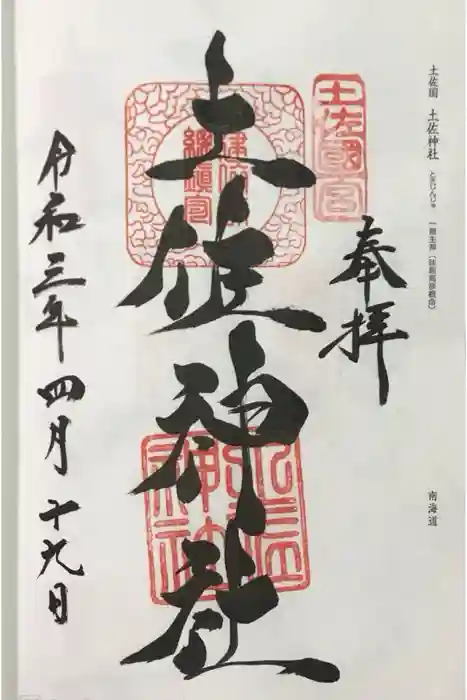 土佐国 土佐神社 とさじんじゃ 一言主神(味鋤高彦根命)
南海道
土佐國一宮
奉拝
土佐神社
土佐神社
令和三年四月十九日